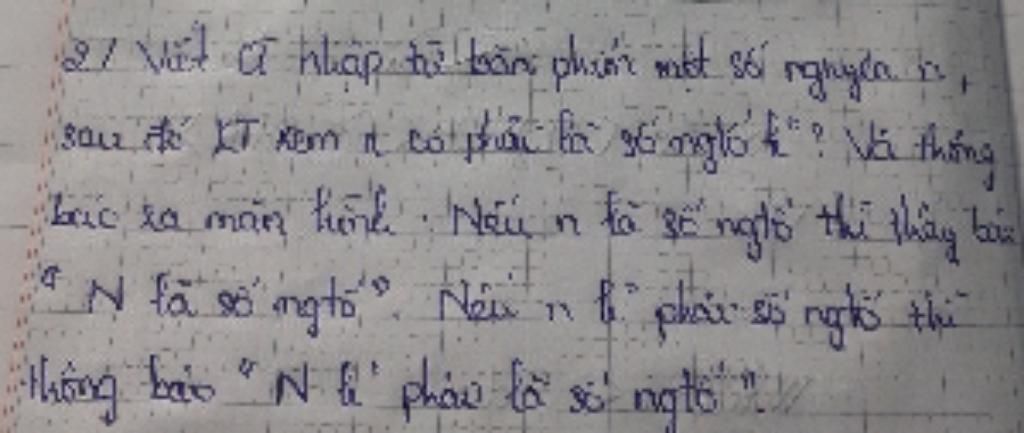 2/ Viết CT nhập từ bàn phím một số nguyên n,
sau đó KT xem n có phải là số ngtố k°? Và thông
báo ra màn hình. Nếu n là số ngtố thì thông báo
"N là số ngtố". Nếu n k° phải số ngtố thì
thông báo "N k° phải là số ngtố".